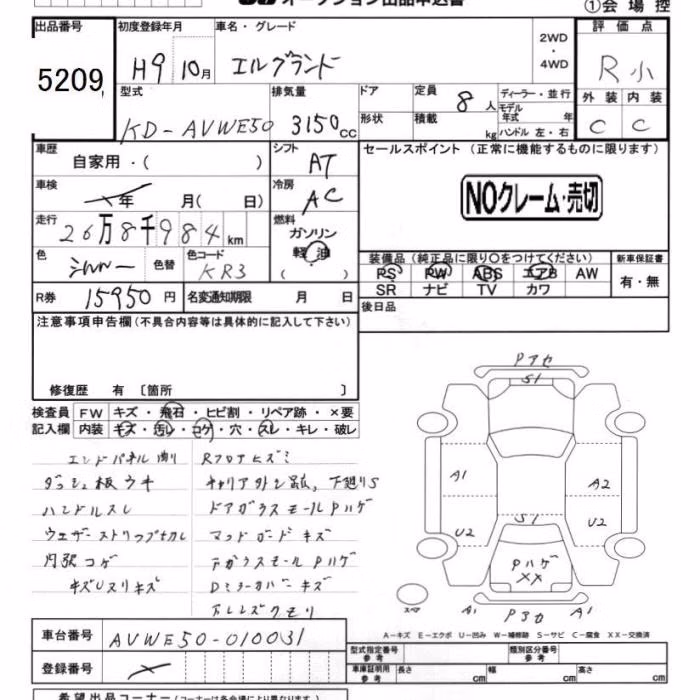 オークション出品申込書 ①会場控
出品番号 初度登録年月 車名・グレード 2WD・4WD 評価点
5209 H9 10月 エルグランド R小
型式 排気量 ドア 定員 8人 ディーラー・並行 外装 内装
KD-AVWE50 3150cc 形状 積載 kg モデル年式 年 ハンドル 左・右 C C
車歴 自家用・( ) シフト AT セールスポイント(正常に機能するものに限ります)
車検 年 月( 日) 冷房 AC NOクレーム・売切
走行 26万8千984km 燃料 ガソリン 軽油 ( ・ )
色 シルバー 色替 色コード KR3 装備品(純正品に限り〇をつけてください) 新車保証書
PS PW ABS エアB AW 有・無
SR ナビ TV カワ
R券 15950円 名変通知期限 月 日 後日品
注意事項申告欄(不具合内容等は具体的に記入して下さい)
修復歴 有 〔箇所 〕
検査員 FW キズ・飛石・ヒビ割・リペア跡・×要
記入欄 内装 キズ・汚レ・コゲ・穴・スレ・キレ・破レ
エンドパネル曲リ Rフロアヒズミ
ダッシュ板ウキ 下廻りS
ハンドルスレ ドアガラスモールPハゲ
ウェザーストリップ切レ マッドガードキズ
内張コゲ PハゲDミラーカバーキズ
キズUスリキズ
Pアセ
S1
A1 A2
U2 U2
S1
Pハゲ
XX
スペア A1 Pヨカ A1
A-キズ E-エクボ U-凹み W-補修跡 S-サビ C-腐食 XX-交換済
車台番号 AVWE50-010031 型式指定番号 参考 類別区分番号 参考
登録番号 車庫証明用 参考 長さ cm 幅 cm 高さ cm
希望出品コーナー(コーナーは各会場により異なります)